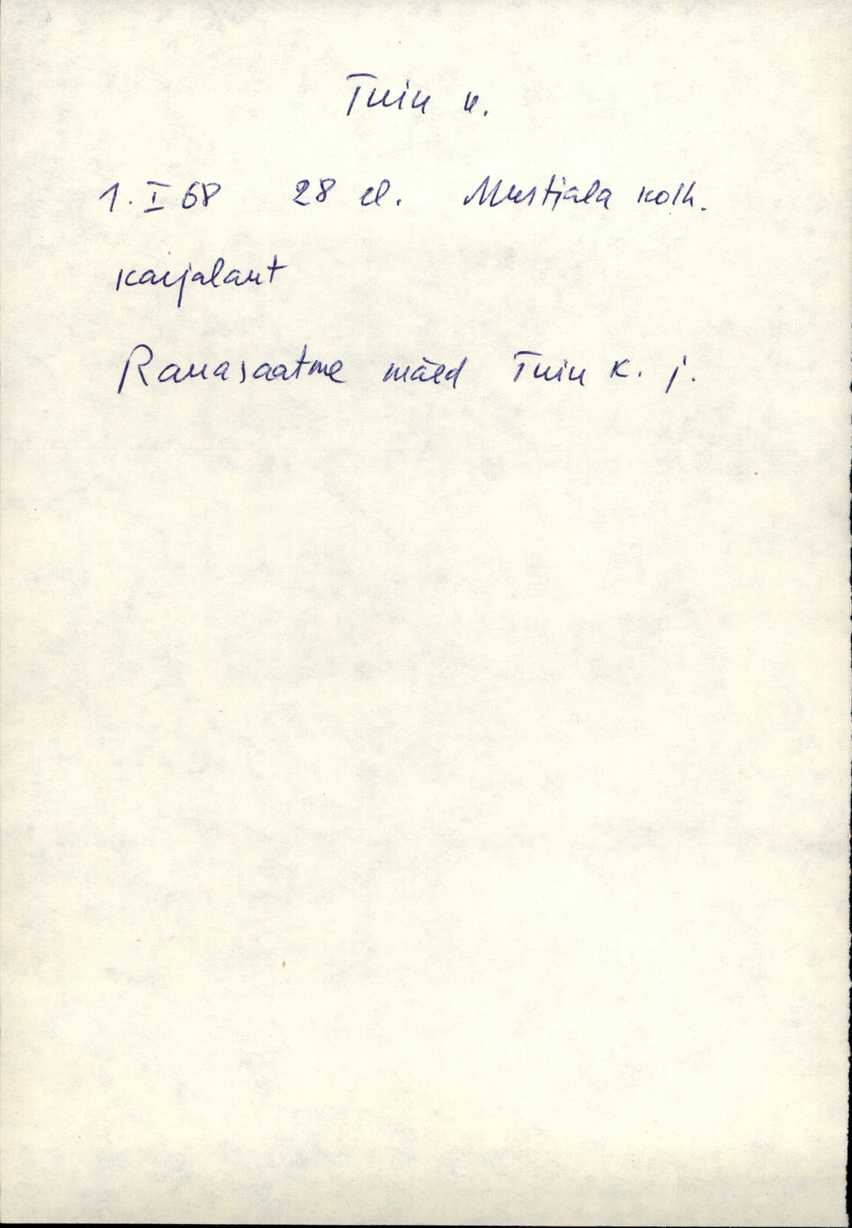 Tuiu k.
1. I 68 28 el. Mustjala kolh.
karjalaut
Rauasaatme mäed Tuiu k. j.